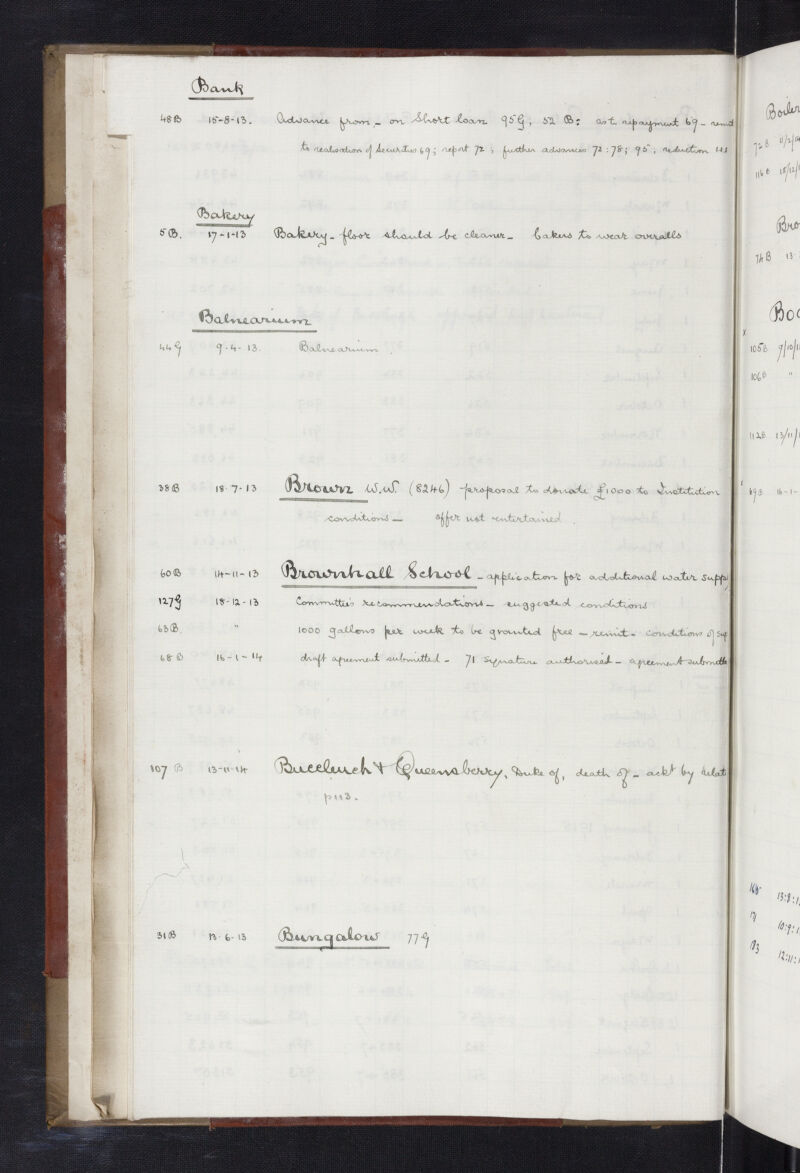 Bank
48B 15-8-13. Advance from – on Short loan 95G, 52 B: as to repayment 69 –
to realisation of Securities 69; report 72; further advances 72: 78; 95; reduction
Bakery
5B. 17-1-13 Bakery – floor should be cleaner – bakers to wear overalls
Balnearium
44G 9-4-13. Balnearium
38B 18-7-13 Brown W.W. (8246) – proposal to donate £1000 to Institution
conditions – offer not entertained.
60B 14-11-13 Brownhall School – application for additional water supp
127G 18-12-13 Committees recommendations – suggested conditions
63B " 1000 gallons per week to be granted free – remit – conditions of sup
68B 16-1-14 draft agreement submitted – 71 signature authorised – agreement submitte
107 B 13-11-14 Buccleuch & Queensberry, Duke of, death of – ackt by relat
p113.
31B 13-6-13 Bungalow 77G
Boiler
72B 11/2/14
116B 18/12/1
Bro
74B 13-
Boo
x
105B 9/10/1
106B "
112B 13/11/1
16-1-
13:8:1
10:9:1
12:11:1